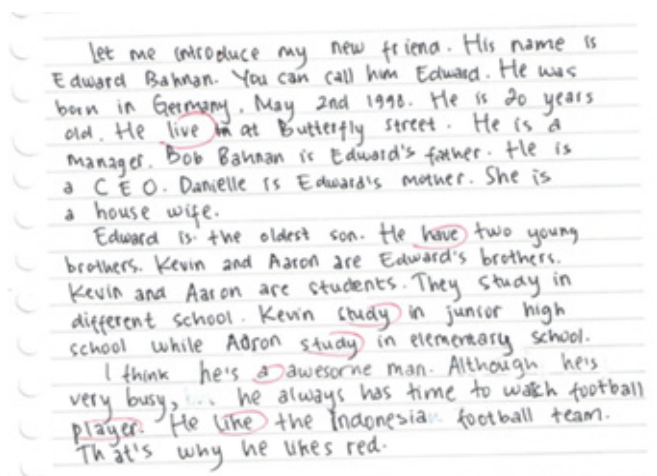 Let me introduce my new friend. His name is
Edward Bahnan. You can call him Edward. He was
born in Germany, May 2nd 1998. He is 20 years
old. He live at Butterfly street. He is a
manager. Bob Bahnan is Edward's father. He is
a CEO. Danielle is Edward's mother. She is
a house wife.
Edward is the oldest son. He have two young
brothers. Kevin and Aaron are Edward's brothers.
Kevin and Aaron are students. They study in
different school. Kevin study in junior high
school while Aaron study in elementary school.
I think he's a awesome man. Although he's
very busy, he always has time to watch football
player. He like the Indonesia football team.
That's why he likes red.